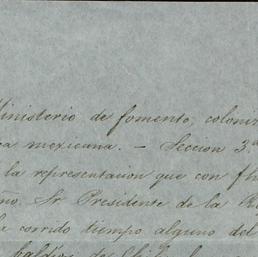 Ministerio de fomento, coloni
ca mexicana. — Seccion 3.ª
la representacion que con fh
ño. Sr Presidente de la R
a corrido tiempo alguno del
baldios de